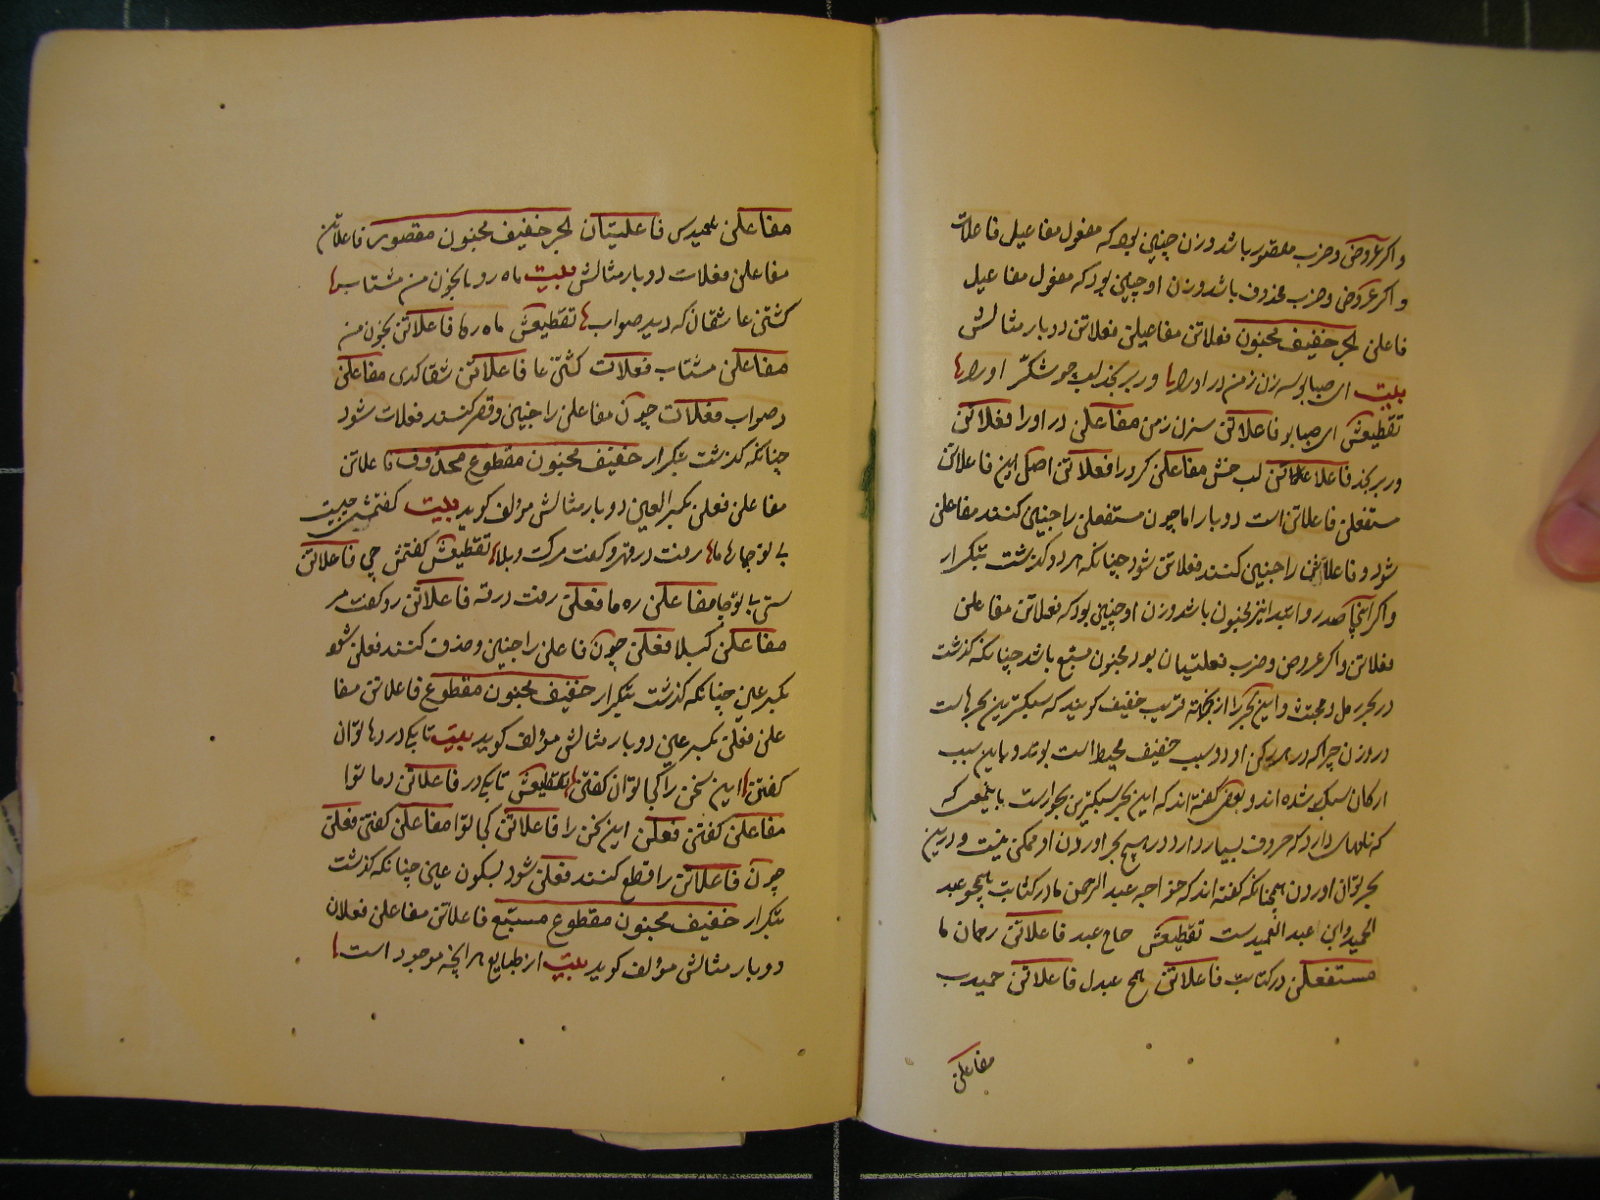 واکر عروض و ضرب مقصور باشد وزن چنین بود که مفعول مفاعیل فاعلات
واکر عروض و ضرب محذوف باشد وزن او چنین بود که مفعول مفاعیل
فاعلن بحر خفیف مخبون فعلاتن مفاعلن فعلاتن دوبار مثالش
بیت ای صبا بوسه زن زمن در اورا وربرنجد لب چو شکر اورا
تقطیعش ای صبا بو فاعلاتن سزن زمن مفاعلن در اورا فعلاتن
وربرنجد فاعلاتن لب خش مفاعلن کر درا فعلاتن اصل این فاعلاتن
مستفعلن فاعلاتن است دوبار اما چون مستفعلن را خبن کنند مفاعلن
شود و فاعلاتن را خبن کنند فعلاتن شود چنانکه هر دو کذشت بتکرار
واکر اینجا صدر و ابتدا نیز مخبون باشد وزن او چنین بود که فعلاتن مفاعلن
فعلاتن واکر عروض و ضرب فعلیتان بود مخبون مسبغ باشد چنانکه کذشت
در بحر رمل و مجتث و این بحر را از خفیف کویند که سبکترین بحرهاست
در وزن چرا که در هر رکن او دو سبب خفیف محیط است بوتد و باین سبب
ارکان سبک شده اند و بعضی کفته اند که این بحر سبکترین بحور است باینمعنی که
کلمهای دارد که حروف بسیار دارد در هیچ بحر اوردن او ممکن نیست و درین
بحر توان اوردن همچنانکه کفته اند که خواجه عبد الرحمن ما در کتابت همچو عبد
الحمید و ابن عبد الغمیدست تقطیعش خاج عبد فاعلاتن رحمان ما
مستفعلن در کتابت فاعلاتن همچ عبدل فاعلاتن حمیدب
مفاعلن
مفاعلن فاعلیتان بحر خفیف مخبون مقصور فاعلاتن
مفاعلن فعلات دوبار مثالش بیت ماه رو بخون من مشتاب
کشتن عاشقان که دید صواب تقطیعش ماه رها فاعلاتن بخون من
مفاعلن مشتاب فعلات کشتن عا فاعلاتن شقا کدی مفاعلن
دصواب فعلات چون مفاعلن را خبن و قصر کنند فعلات شود
چنانکه کذشت بتکرار خفیف مخبون مقطوع محذوف فاعلاتن
مفاعلن فعلن بکسر العین دوبار مثالش مؤلف کوید بیت کفتمش چیست
بی تو چارها ما رفت در قهر و کفت مرکت و بلا تقطیعش کفتمش چی فاعلاتن
ستی بی تو چا مفاعلن ره ما فعلن رفت در قه فاعلاتن رو کفت مر
مفاعلن کبلا فعلن چون فاعلن را خبن و حذف کنند فعلن شود
بکسر عین چنانکه کذشت بتکرار خفیف مخبون مقطوع فاعلاتن مفا
علن فعلن بکسر عین دوبار مثالش مؤلف کوید بیت تا یکی دردها توان
کفتن این سخن را کجا توان کفتن تقطیعش تا یکی در فاعلاتن دما توا
مفاعلن کفتن فعلن این سخن را فاعلاتن کجا توا مفاعلن کفتن فعلن
چون فاعلاتن را قطع کنند فعلن شود بسکون عین چنانکه کذشت
بتکرار خفیف مخبون مقطوع مسبغ فاعلاتن مفاعلن فعلان
دوبار مثالش مؤلف کوید بیت از طبایع هر انچه موجود است